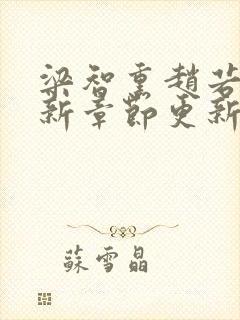 梁智熏趙若
新章節更新
蘇雪晶